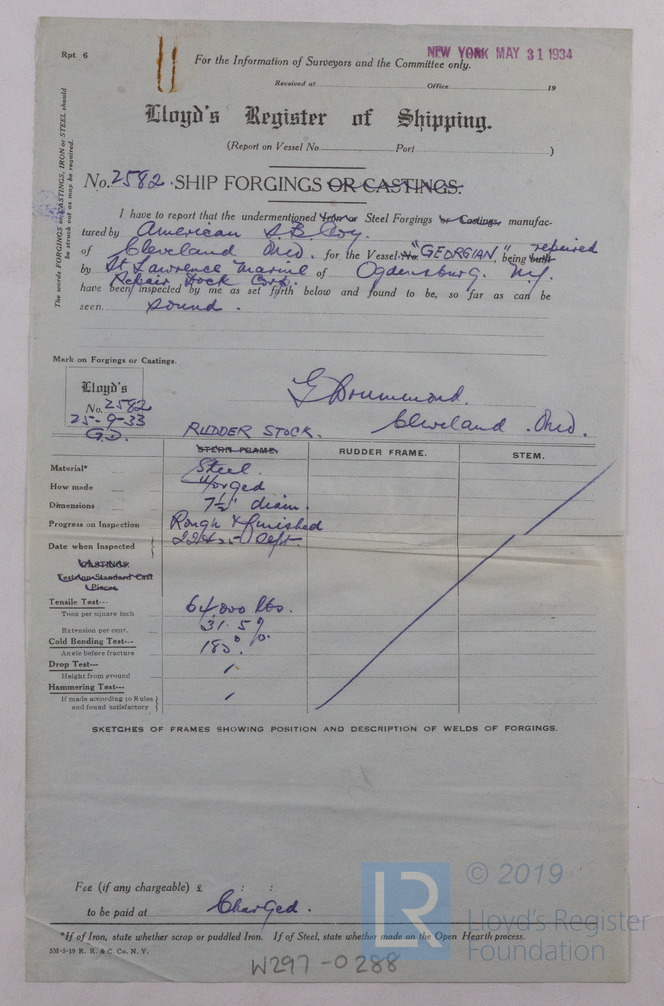 Rpt. 6
For the Information of Surveyors and the Committee only.
NEW YORK MAY 31 1934
Received at Office 19
Lloyd's Register of Shipping.
(Report on Vessel No. Port )
The words FORGINGS or CASTINGS, IRON or STEEL should be struck out as may be required.
No. 2582. SHIP FORGINGS OR CASTINGS.
I have to report that the undermentioned Iron or Steel Forgings or Castings, manufac-
tured by American S.B. Coy.
of Cleveland Ohio. for the Vessel No. "GEORGIAN" being built repaired
by St. Lawrence Marine of Ogdensburg. N.Y.
Repair Dock Corp.
have been inspected by me as set forth below and found to be, so far as can be
seen sound.
Mark on Forgings or Castings.
Lloyd's
No. 2582
25-9-33
G.D.
G Drummond.
Cleveland. Ohio.
RUDDER STOCK.
STERN FRAME. RUDDER FRAME. STEM.
Material* Steel.
How made Forged
Dimensions 7½" diam.
Progress on Inspection Rough & finished
Date when Inspected 22 & 25 Sept.
CASTINGS.
Tests from Standard Cast
Pieces
Tensile Test---
Tons per square inch 64,000 lbs.
Extension per cent. 31.5%
Cold Bending Test---
Angle before fracture 180°.
Drop Test---
Height from around
Hammering Test---
If made according to Rules
and found satisfactory
SKETCHES OF FRAMES SHOWING POSITION AND DESCRIPTION OF WELDS OF FORGINGS.
Fee (if any chargeable) £ : :
to be paid at Charged.
*If of Iron, state whether scrap or puddled Iron. If of Steel, state whether made on the Open Hearth process.
5M-3-19 R. R. & C. Co. N. Y.
W297-0288
LR
© 2019
Lloyd's Register
Foundation